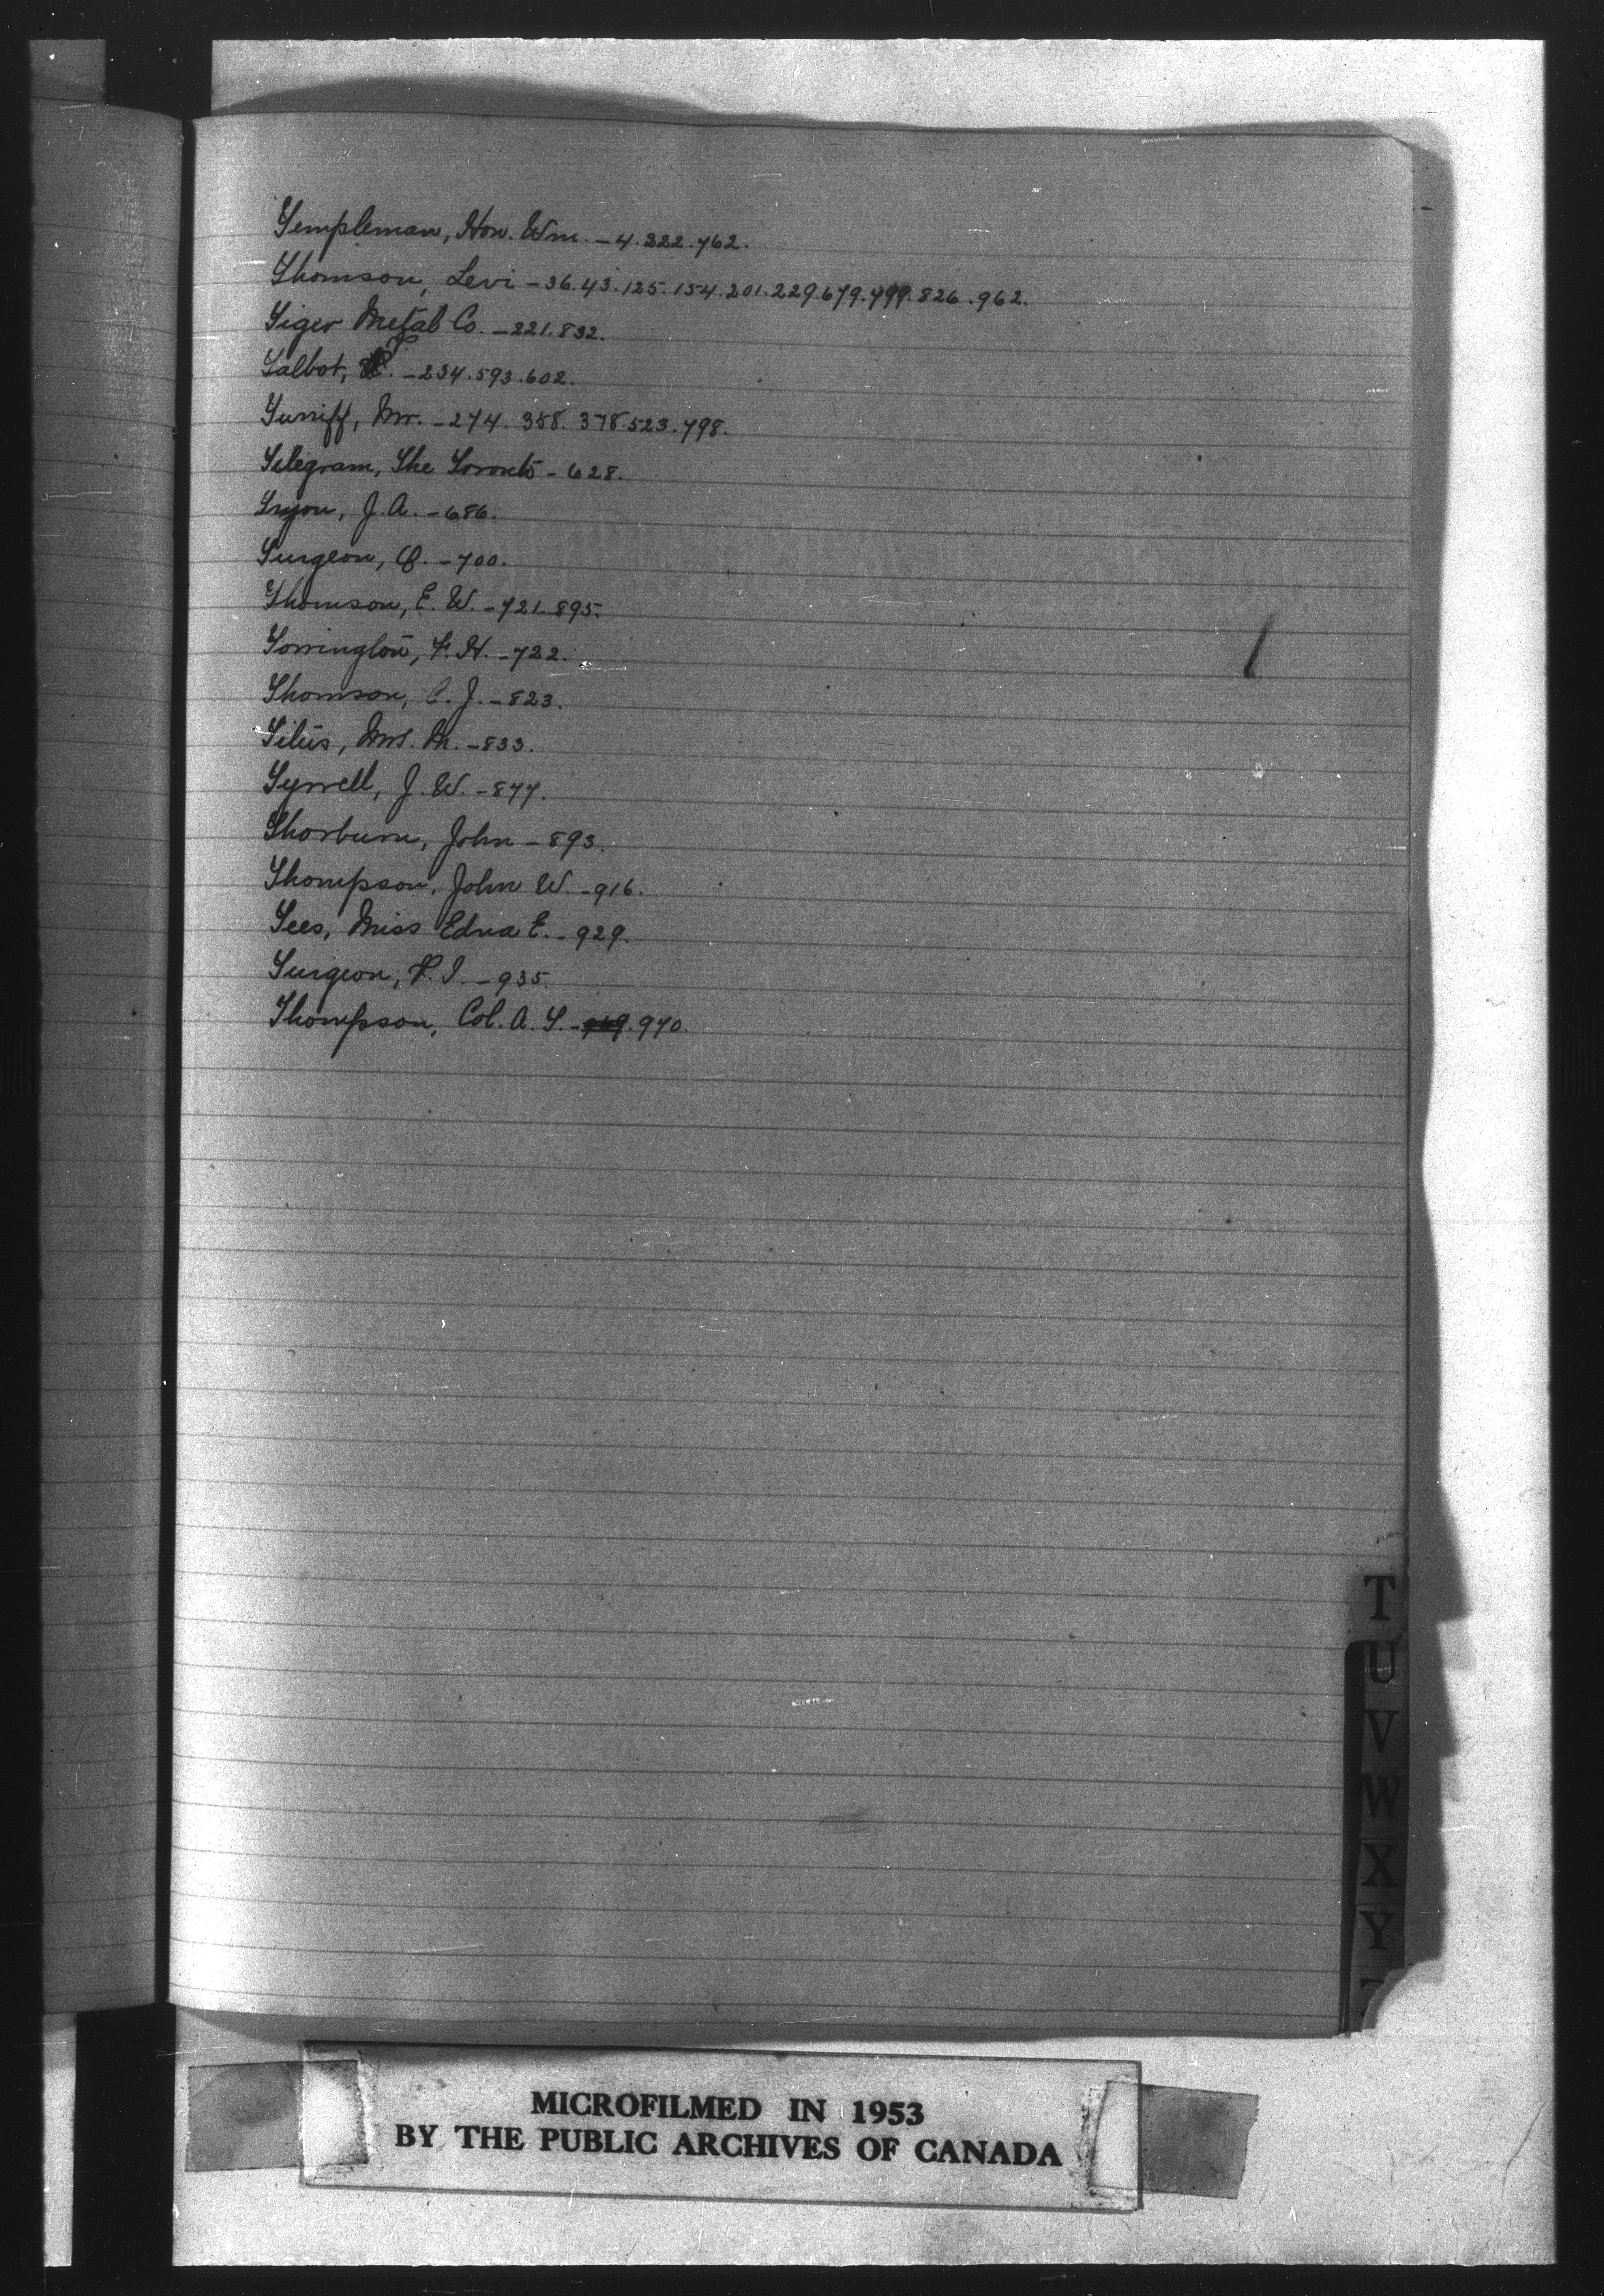 Templeman, Hon. Wm. - 4. 322. 762.
Thomson, Levi - 36. 43. 125. 154. 201. 229. 679. 799. 826. 962.
Tiger Metal Co. - 221. 832.
Talbot, - 234. 593. 602.
Turriff, Mr. - 274. 358. 378. 523. 798.
Telegram, The Toronto - 628.
Tryon, J. A. - 686.
Turgeon, O. - 700.
Thomson, E. W. - 721. 895.
Torrington, F. H. - 722.
Thomson, C. J. - 823.
Titus, Mrs. M. - 833.
Tyrrell, J. W. - 877.
Thorburn, John - 893.
Thompson, John W. - 916.
Tees, Miss Edna E. - 929.
Turgeon, P. I. - 935.
Thompson, Col. A. T. - 970.
T
U
V
W
X
Y
MICROFILMED IN 1953
BY THE PUBLIC ARCHIVES OF CANADA